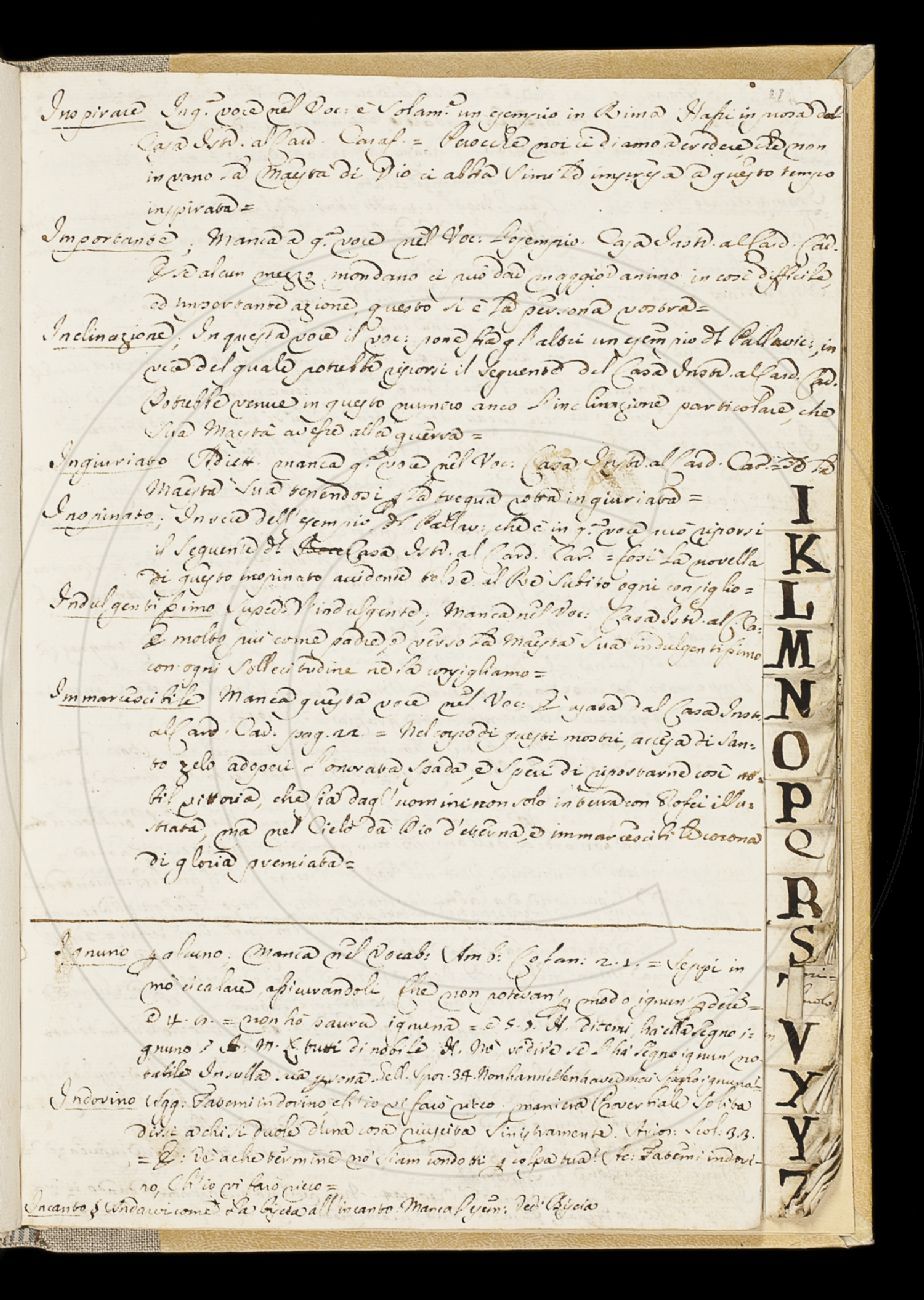 Inspirare In q.ª voce nel Voc: è solam.e un esempio in Rima. Hassi in prosa dal
Casa Istr. al Card. Caraf. = Perocchè noi ci diamo a credere che non
in vano la Maestà di Dio ci abbia simil impresa a questo tempo
inspirata =
Importante, Manca a q.ª voce nel Voc: l'esempio. Casa Instr. al Card. Car.
E se alcun mezzo mondano ci può dar maggior animo in così difficile,
ed importante azione, questo si è la persona vostra =
Inclinazione, In questa voce il Voc: pone fra gl'altri un esempio del Pallavic:, in
vece del quale potrebbe riporsi il seguente del Casa Instr. al Card. Car.
Potrebbe venire in questo numero anco l'inclinazione particolare, che
Sua Maestà avesse alla guerra =
Ingiuriato Adiett. manca q.ª voce nel Voc: Casa Instr. al Card. Car. = la
Maestà Sua tenendosi p la tregua rotta ingiuriata =
Inopinato, In vece dell'esempio del Pallav: che è in q.ª voce può riporsi
il seguente del Casa Istr. al Card. Car. = Così la novella
di questo inopinato accidente tolse al Re subito ogni consiglio =
Indulgentissimo Superl. d'indulgente, Manca nel Voc: Casa Istr. al Ca:
E molto più come padre, e verso la Maestà Sua indulgentissimo
con ogni sollecitudine ne la consigliamo =
Immarcescibile Manca questa voce nel Voc: È usata dal Casa Instr.
al Card. Car. pag. 22. = Nel corpo di questi mostri, accesa di san-
to zelo adoperi l'onorata spada, e speri di riportarne così
vittoria, che sia dagl'uomini non solo in terra con Trofei illu-
strata, ma nel Cielo da Dio d'eterna, e immarcescibile corona
di gloria premiata =
Ignuno p alcuno. Manca nel Vocab: Amb: Cofan: 2. 1. = Seppi in
mo' cicalare, assicurandole, che non potevan p modo ignun
è 4. = non hò paura ignuna = e 5. Ditemi ha ella segno i-
gnuno? tutti di nobile Nè vedire se l'ha segno ignun no
tabile in sulla sua persona. Gell. Spor. 3.4.
Indovino Agg: Fatemi indovino, ch'io vi farò ricco, maniera Proverbiale solita
dirsi a chi si duole d'una cosa riuscita sinistramente.
= a che termine no' siam condotti p colpa tua! Fatemi indovi-
no, ch'io vi farò ricco =
Incanto, Andarvi come la biscia all'incanto. Manca l'esem: Vedi Biscia
I
K
L
M
N
O
P
Q
R
S
T
V
X
Y
Z